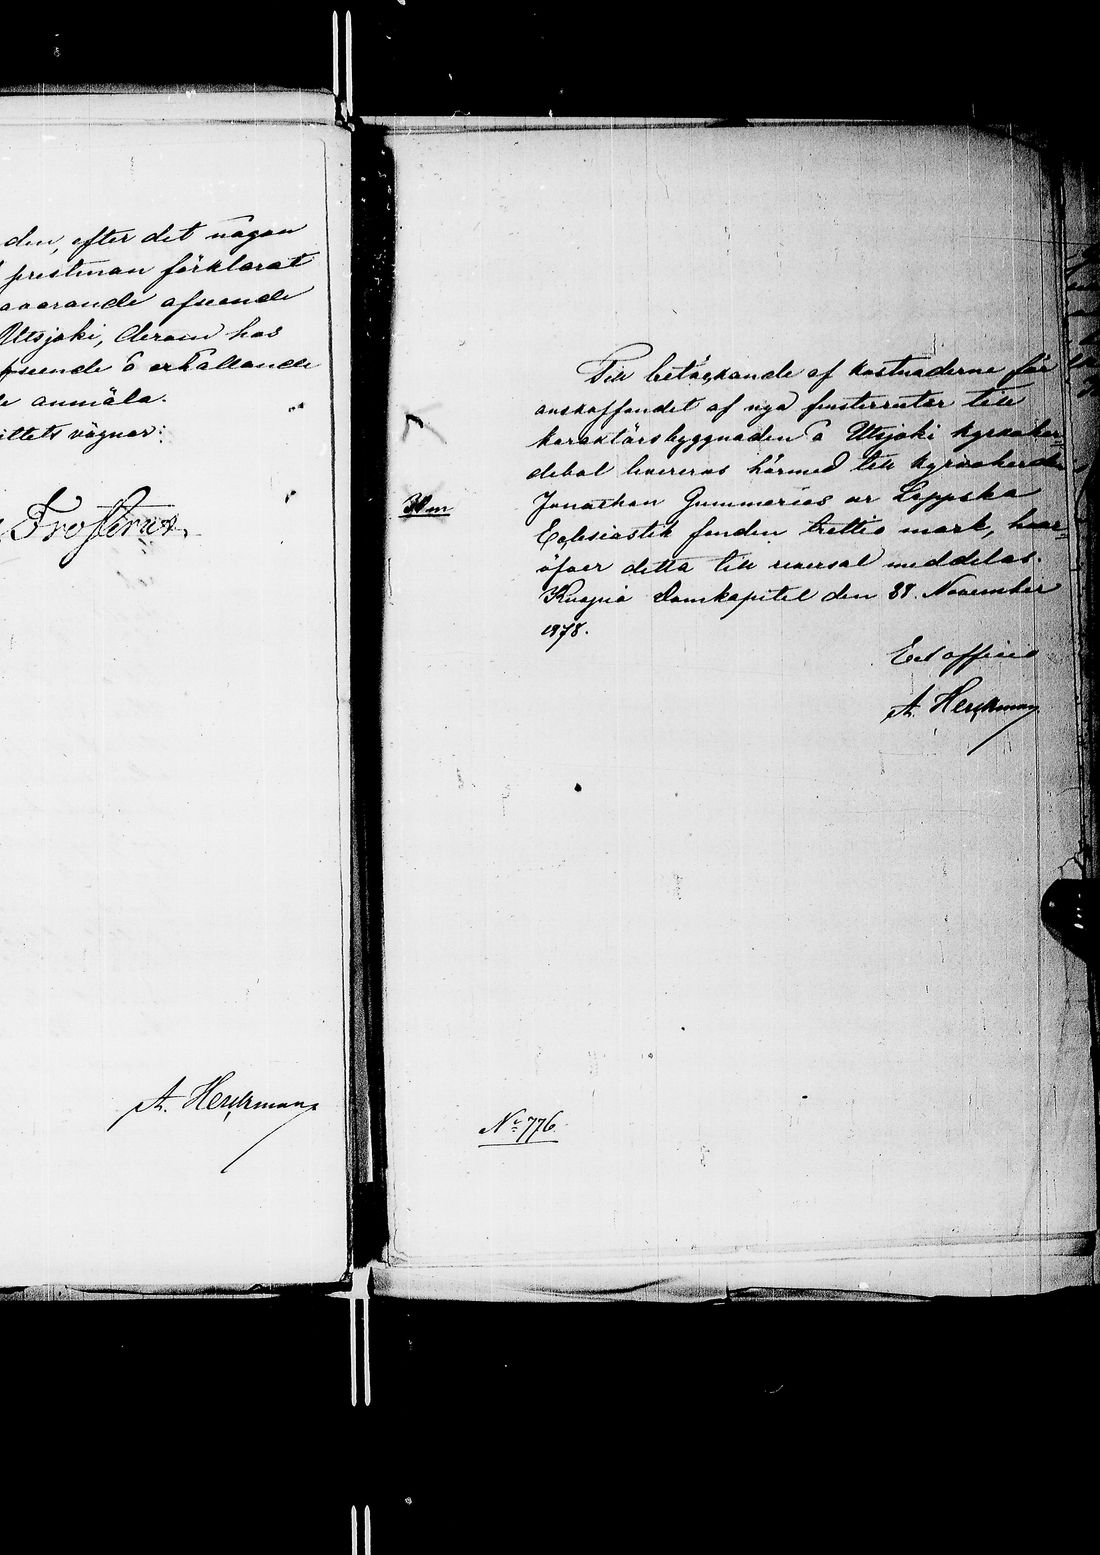 den, efter det någon
prestman förklarat
avarande afseende
Utsjoki, derom hos
afseende å erhållande
de anmäla.
ittets vägnar:
Frosterus.
A. Heickman
Till betäckande af kostnaderne för
anskaffandet af nya fensterrutor till
karaktärsbyggnaden å Utsjoki kyrkoher-
debol levereras härmed till kyrkoherden
30 m
Jonathan Gummerus ur Lappska
Eclesiastik fonden trettio mark, hvar-
öfver detta till reversal meddelas.
Kuopio Domkapitel den 28. November
1878.
Ex officio
A. Heickman
No 776.